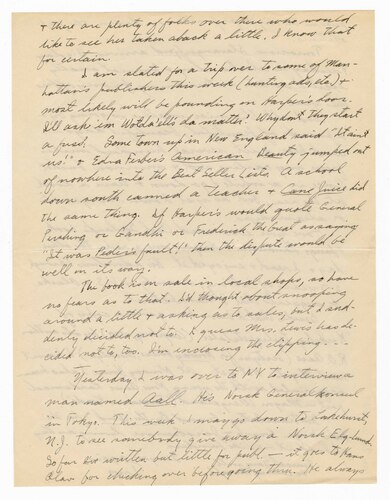 & there are plenty of folks over there who would
like to see her taken aback a little. I know that
for certain.
I am slated for a trip over to some of Man-
hattan's publishers this week (hunting ads, etc) &
most likely will be pounding on Harper's door.
I'll ask 'em Wotda'ells do matter? Why don't they start
a fuss? Some town up in New England said "It ain't
us!" & Edna Ferber's American Beauty jumped out
of nowhere into the Best Seller Lists. A school
down south canned a teacher & Cane Juice did
the same thing. If Harper's would quote General
Pershing or Gandhi or Frederick the Great as saying
"It was Peder's fault!" then the dispute would be
well on its way.
The book is on sale in local shops, so have
no fears as to that. I'd thought about snooping
around a little & asking as to sales, but I sud-
denly decided not to. I guess Mrs. Lewis has de-
cided not to, too. I'm enclosing the clipping...
Yesterday I was over to NY to interview a
man named Aall. He's Norsk General Konsul
in Tokyo. This week I may go down to Lakehurst,
N.J. to see somebody give away a Norsk
So far I've written but little for publ. — it goes to Hans
Olav for checking over before going then. He always